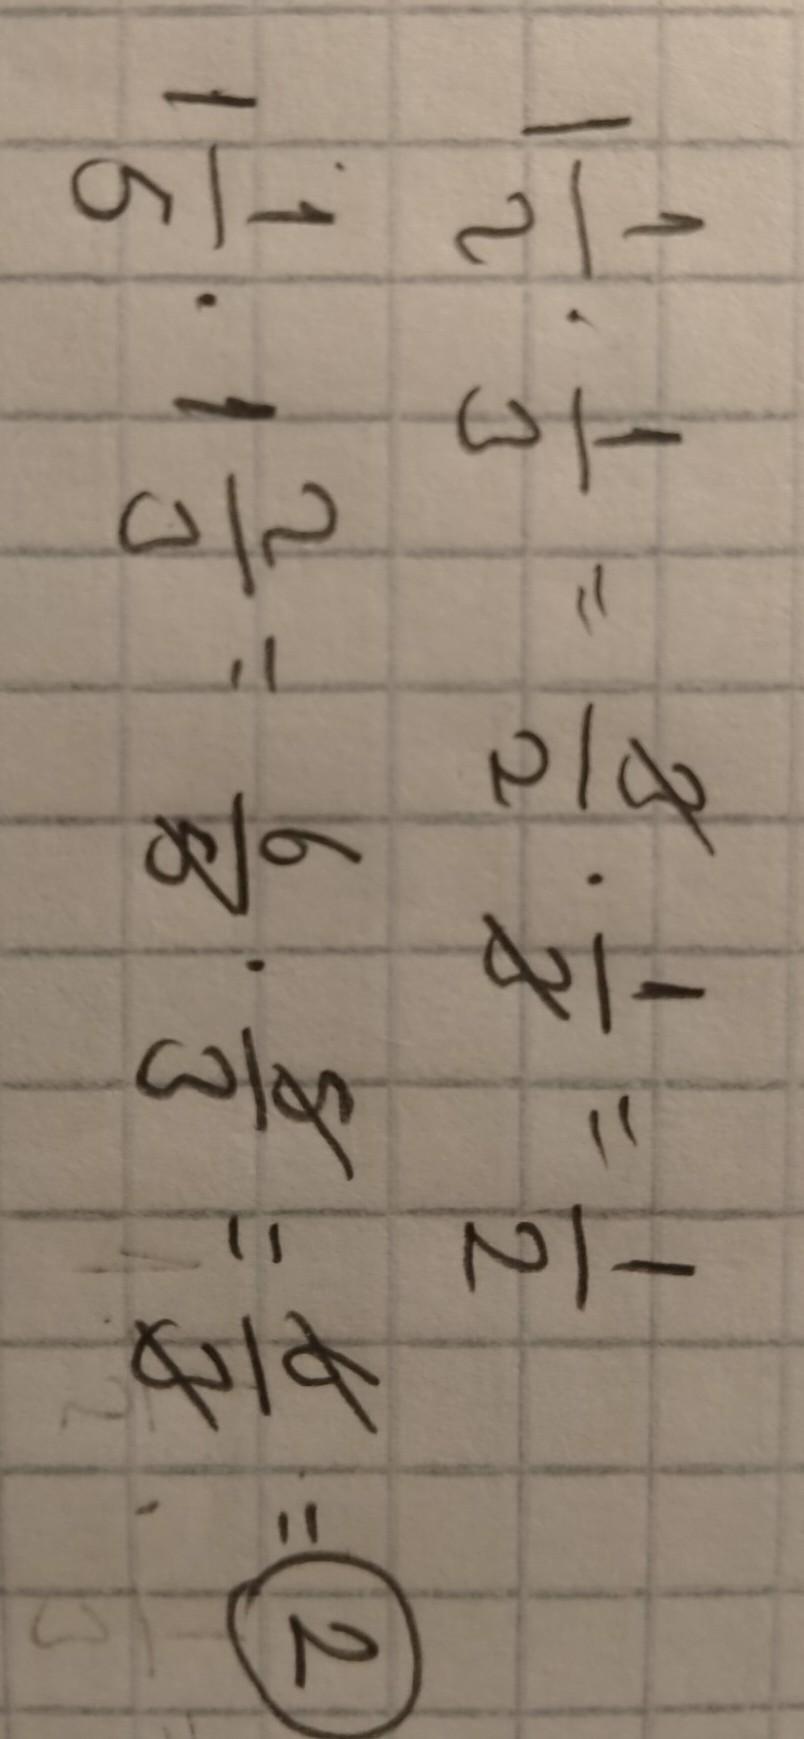 1 1/2 · 1/3 = 3/2 · 1/3 = 1/2
1 1/5 · 1 2/3 = 6/5 · 5/3 = 6/3 = 2